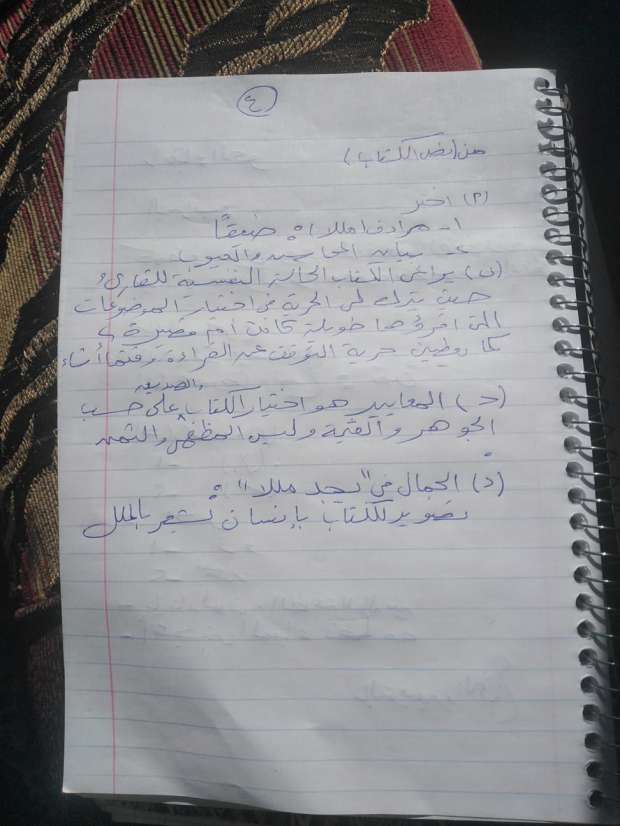 ٤
من (نص الكتاب)
(٢) اختر
١- مرادف (مللا): ضيقًا
٢- بيان المحاسن والعيوب
(ب) يراعى الكتاب الحالة النفسية للقارئ
حيث يترك لى الحرية فى اختيار الموضوعات
التى أقرؤها طويلة كانت أم قصيرة
كما يعطينى حرية التوقف عن القراءة وقتما أشاء
والصديق
(ح) المعايير هو اختيار الكتاب على حسب
الجوهر والقيمة وليس المظهر والثمن
(د) الجمال فى "يجد مللا":
تصوير للكتاب بإنسان يشعر بالملل